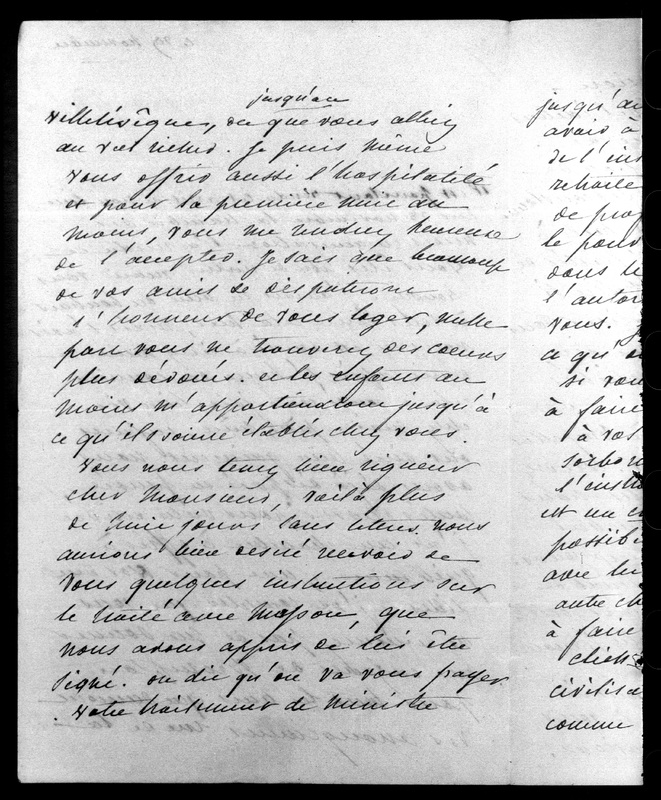 jusqu'au
Villelévêque, ou que vous alliez
au vu. Je puis même
vous offrir aussi l'hospitalité
et pour la première nuit du
moins, vous me rendrez heureuse
de l'accepter. Je sais que beaucoup
de vos amis se disputeront
l'honneur de vous loger, nulle
part vous ne trouverez des coeurs
plus dévoués. et les enfants au
moins m'appartiendront jusqu'à
ce qu'ils soient établis chez vous.
Vous nous tenez bien rigueur
cher Monsieur, voilà plus
de huit jours sans lettres. nous
aurions bien désiré recevoir de
vous quelques instructions sur
le traité avec Masson, que
nous avons appris de lui être
signé. on dit qu'on va vous payer
votre traitement de ministre
jusqu'au
avoir à
de l'ins
retraite
de prog
le pouv
dans le
l'autor
vous. J
ce qu'o
si vou
à faire
à vos
Sorbon
l'instit
et un c
possibi
avec lu
autre ch
à faire
civilisa
comme